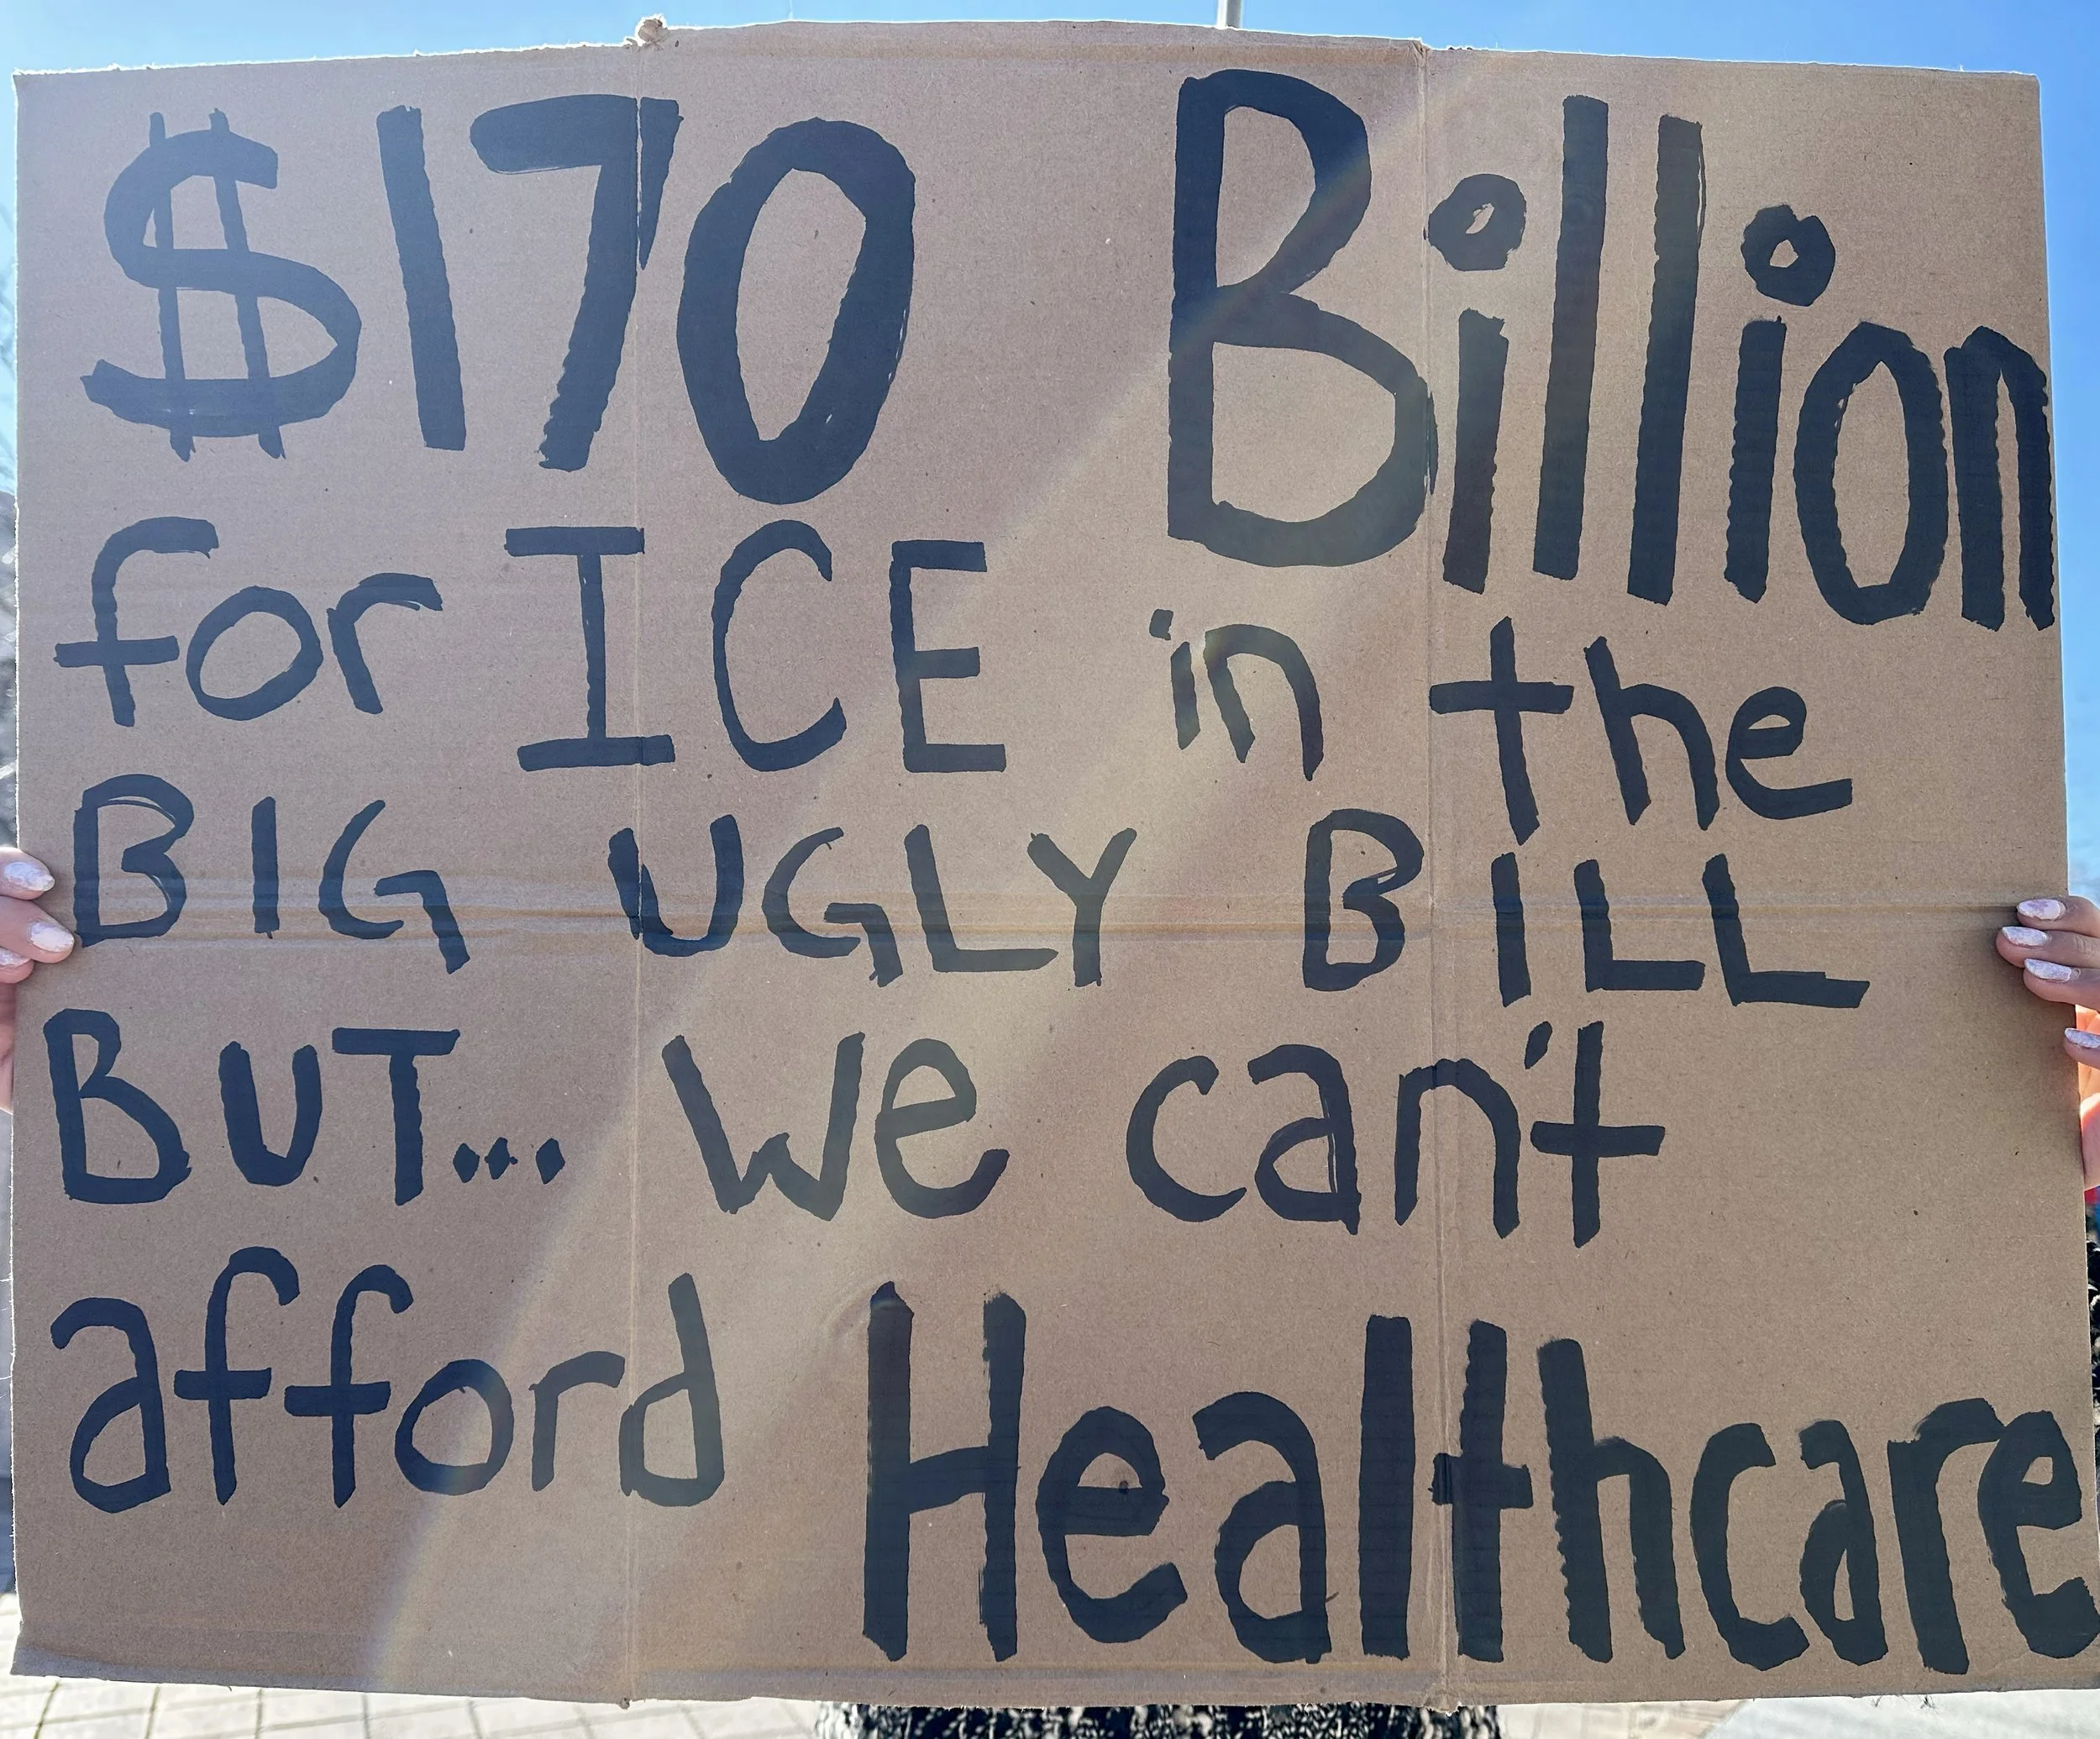 $170 Billion
for ICE in the
BIG UGLY BILL
BUT... we can't
afford Healthcare